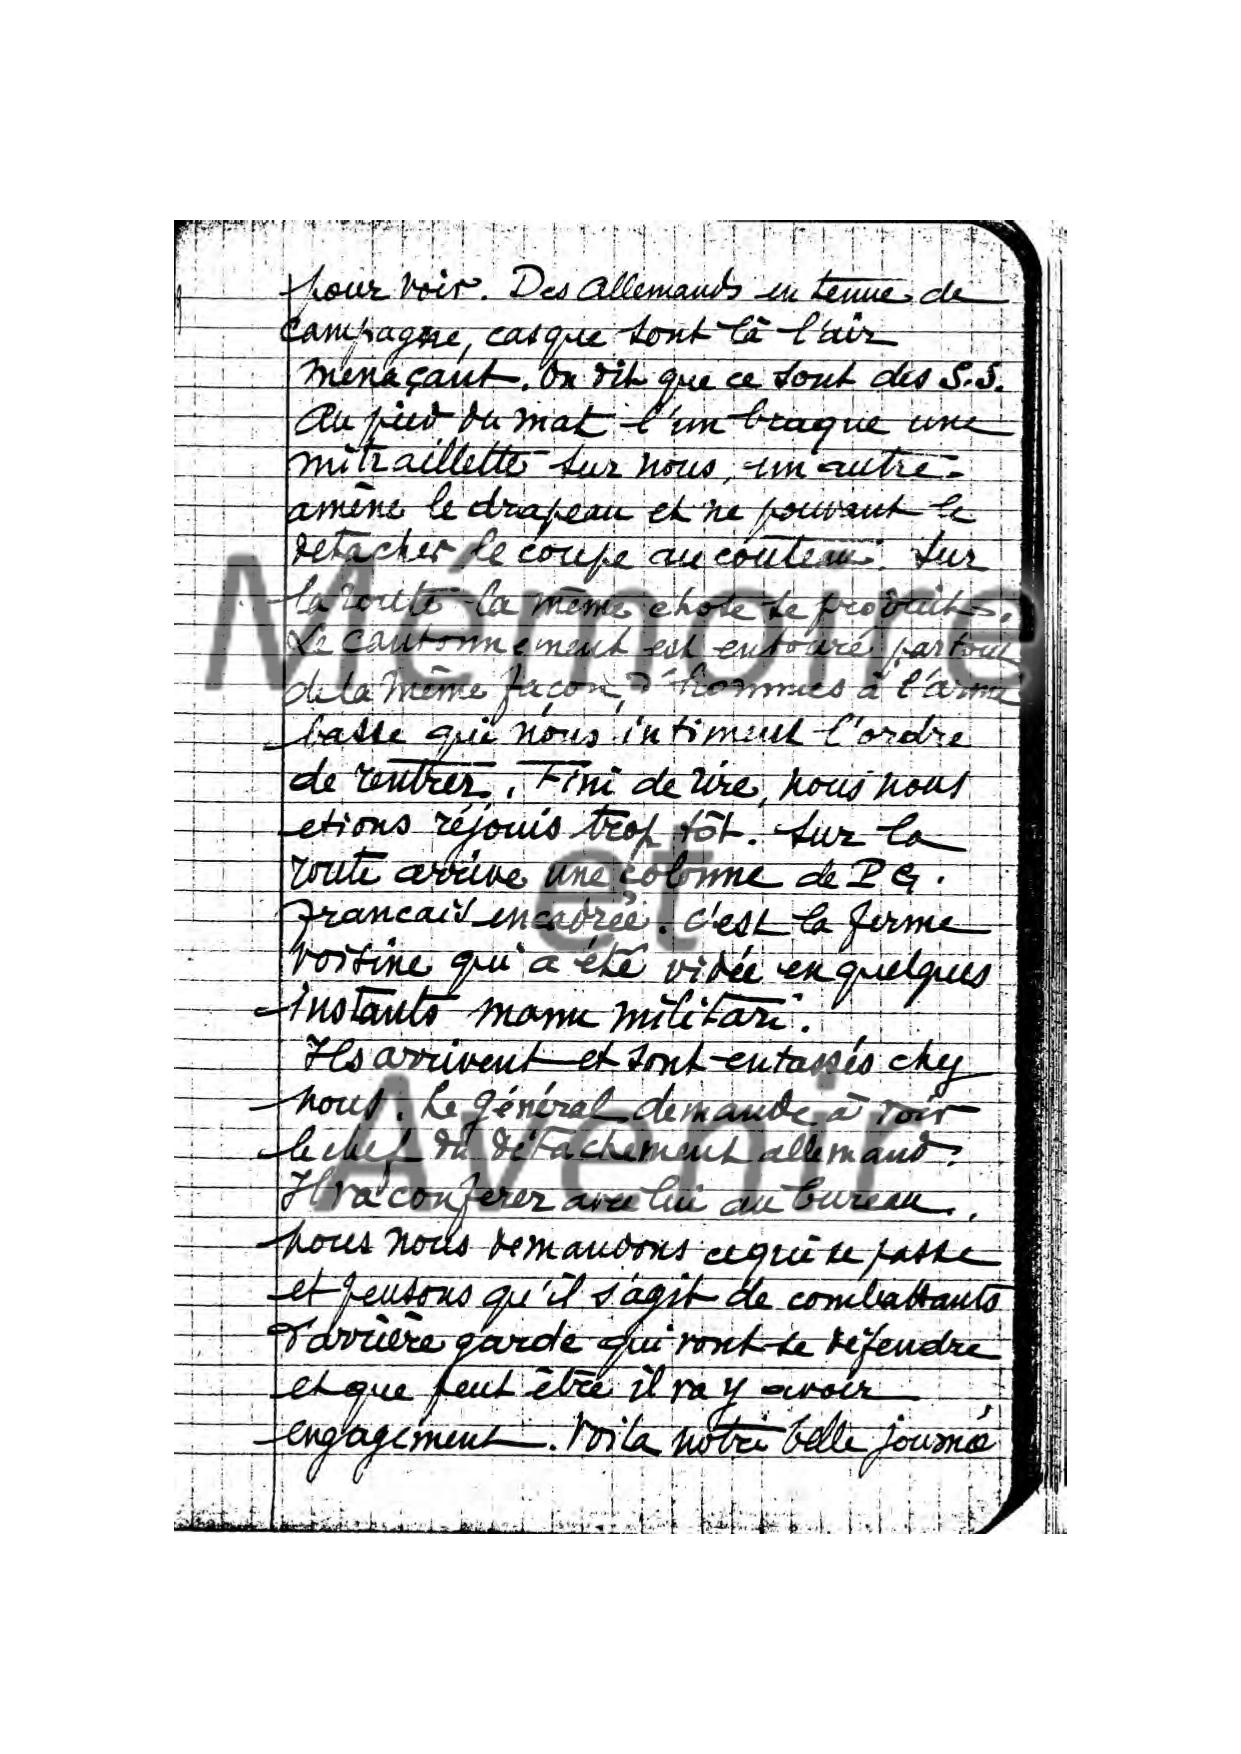 pour voir. Des allemands en tenue de
campagne, casque sont là l'air
menaçant. On dit que ce sont des S.S.
Au pied du mat l'un braque une
mitraillette sur nous, un autre
amène le drapeau et ne pouvant le
detacher le coupe au couteau. Sur
la route la même chose se produit.
Le cantonnement est entouré partout
de la même façon, d'hommes à l'arme
basse qui nous intiment l'ordre
de rentrer. Fini de rire, nous nous
etions réjouis trop tôt. Sur la
route arrive une colonne de P.G.
francais encadrée. C'est la ferme
voisine qui a été vidée en quelques
instants manu militari.
Ils arrivent et sont entassés chez
nous. Le général demande à voir
le chef du détachement allemand.
Il va conferer avec lui au bureau.
Nous nous demandons ce qui se passe
et pensons qu'il s'agit de combattants
d'arrière garde qui vont se défendre
et que peut être il va y avoir
engagement. Voila notre belle journée
Mémoire
et
Avenir